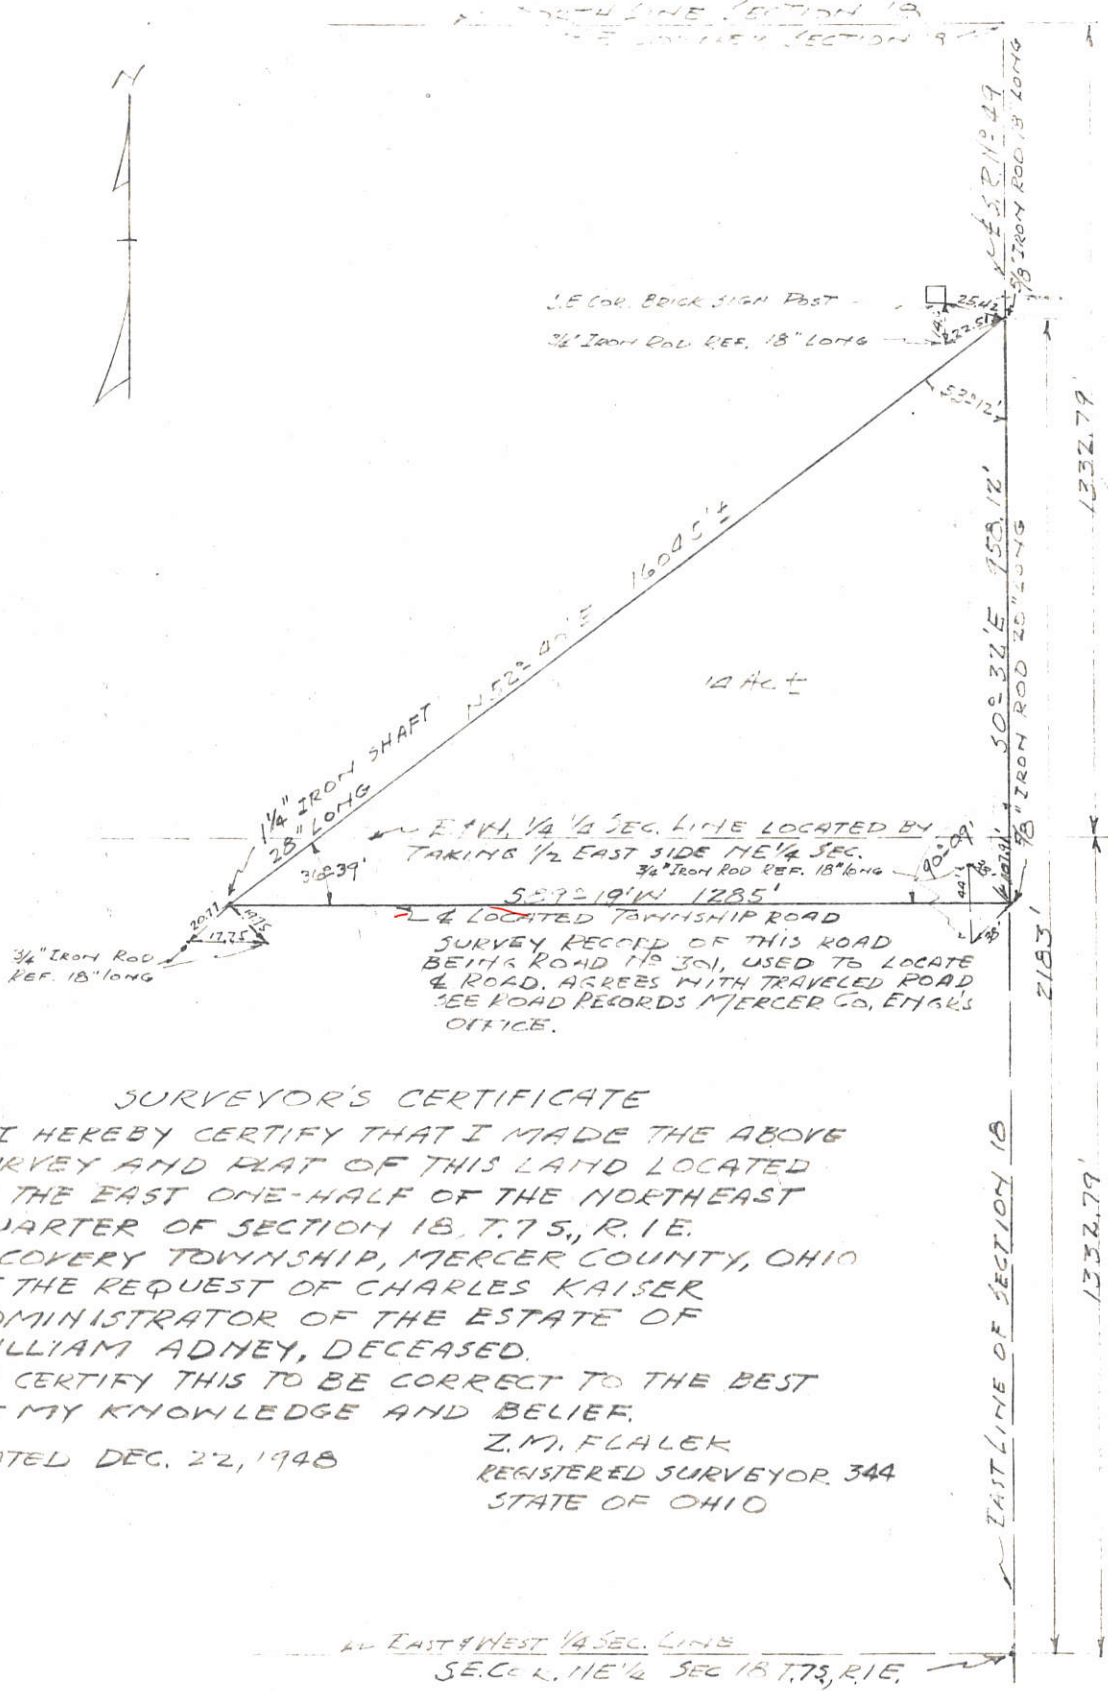 NORTH LINE SECTION 18
SECTION
N
S.R. Nº 49
5/8" IRON ROD 18" LONG
S.E. COR. BRICK SIGN POST
25.42
3/4" IRON ROD REF. 18" LONG
22.5
53º12'
1332.79'
S0º32'E 958.12'
5/8" IRON ROD 20" LONG
1604.5'±
N.52º40'E
14 Ac ±
1¼" IRON SHAFT
28" LONG
E&W. 1/4 1/4 SEC. LINE LOCATED BY
TAKING 1/2 EAST SIDE NE1/4 SEC.
3/4" IRON ROD REF. 18" LONG
90º09'
107.91'
36º39'
S89º19'W 1285'
℄ LOCATED TOWNSHIP ROAD
44'
20.77
17.25
3/4" IRON ROD
REF. 18" LONG
SURVEY RECORD OF THIS ROAD
BEING ROAD Nº 301, USED TO LOCATE
℄ ROAD. AGREES WITH TRAVELED ROAD
SEE ROAD RECORDS MERCER CO, ENGR'S
OFFICE.
2183'
SURVEYOR'S CERTIFICATE
I HEREBY CERTIFY THAT I MADE THE ABOVE
RVEY AND PLAT OF THIS LAND LOCATED
THE EAST ONE-HALF OF THE NORTHEAST
UARTER OF SECTION 18, T.7S., R.1E.
COVERY TOWNSHIP, MERCER COUNTY, OHIO
THE REQUEST OF CHARLES KAISER
DMINISTRATOR OF THE ESTATE OF
ILLIAM ADNEY, DECEASED.
CERTIFY THIS TO BE CORRECT TO THE BEST
MY KNOWLEDGE AND BELIEF.
ATED DEC. 22, 1948
Z.M. FLALEK
REGISTERED SURVEYOR 344
STATE OF OHIO
EAST LINE OF SECTION 18
1332.79'
EAST & WEST 1/4 SEC. LINE
S.E. COR. NE1/4 SEC 18 T.7S, R.1E.